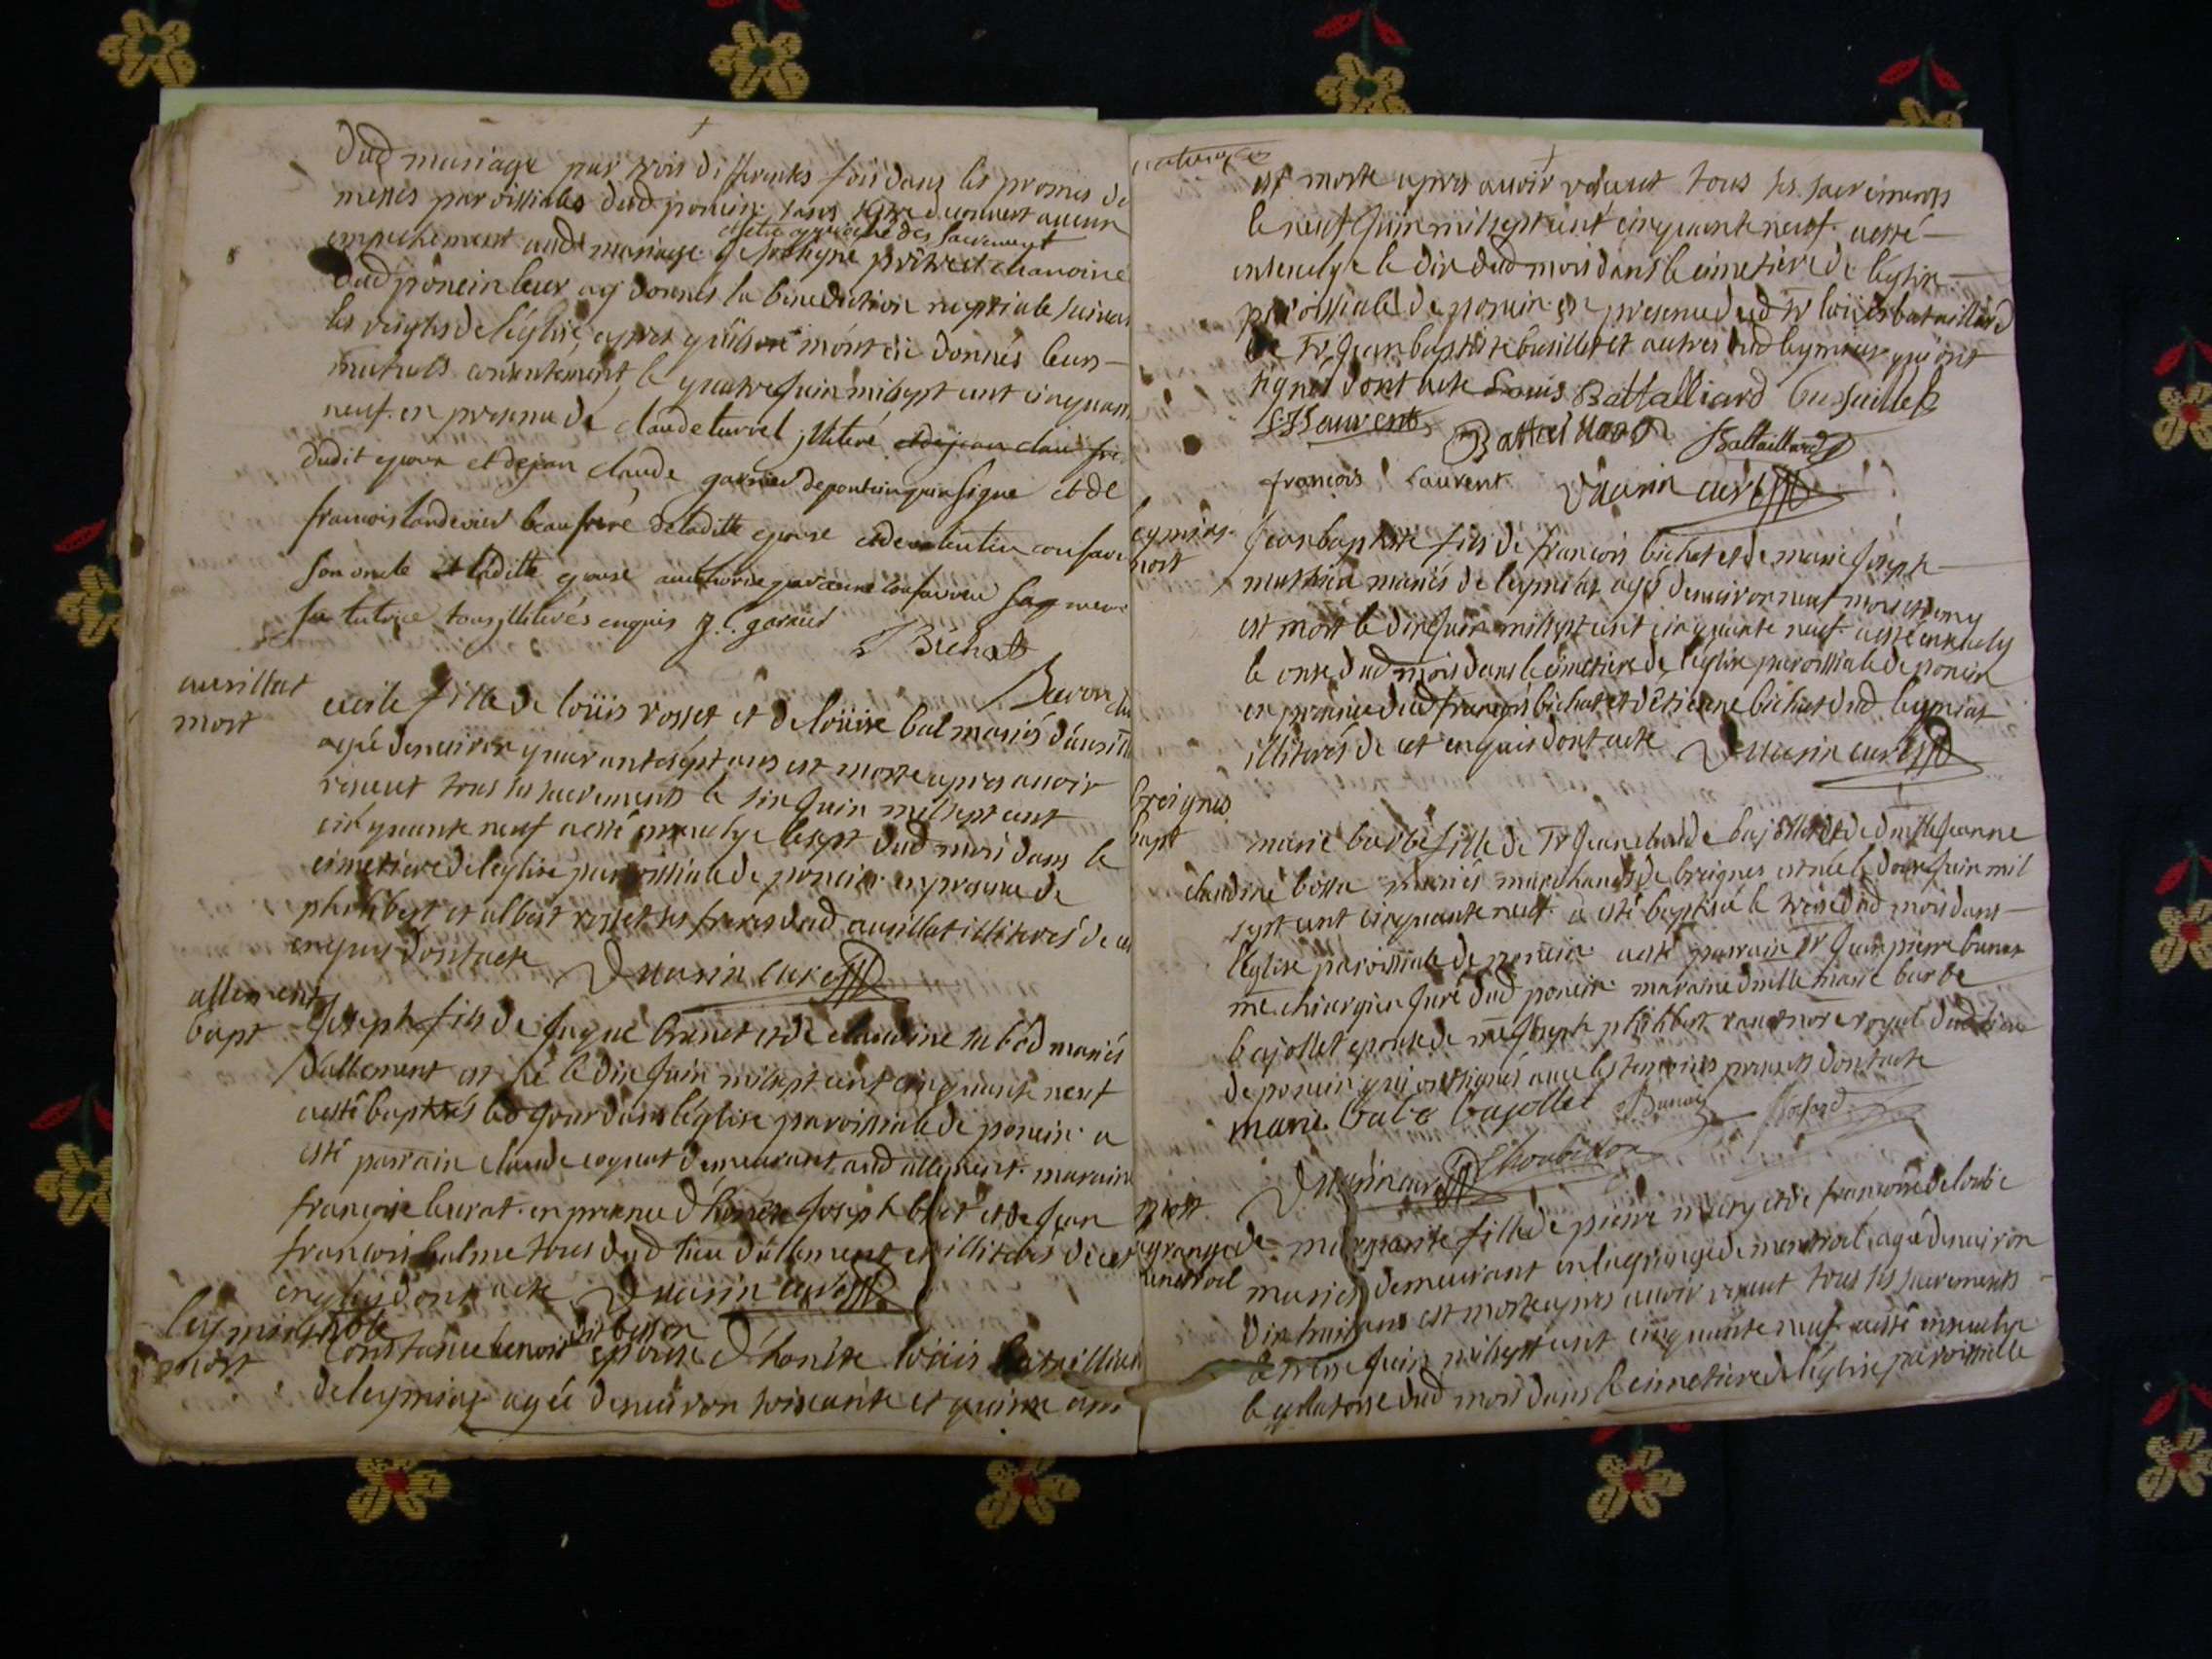 dud mariage par trois differentes fois dans les pronies de
messes paroissiales dud poncin sans s'etre decouvert aucun
empechement aud mariage je soubsigné prêtre et chanoine
et s'être approché des sacrement
dud poncin leur ay donnés la benediction nuptiale suivan
les reigles de l'église, apres qu'ils ont m'ont eu donnés leurs
mutuels consentement, le quatre juin mil sept cent cinquan
neuf. en presence de claude turrel illiteré et de jean clau fre
dudit epoux et de jean claude garnier de poncin qui a signé et de
francois tandevier beaufrere de laditte epouse et de valentin
son oncle et laditte epouse authorisé par
sa tutrice tous illiterés enquis j. c. garnier
Bichat
ausillat
mort
cecile fille de loüis rosset et de loüise bal mariés d'ausilla
agée denviron quarantesept ans est morte apres avoir
receut tous ses sacrements le six juin mil sept cent
cinquante neuf a esté ensevelye le sept dud mois dans le
cimetiere de leglise paroissiale de poncin en presence de
philibert et albert rosset ses freres dud ausillat illiterés de ce
enquis dont acte Duarin curé
allement
bapt
Joseph fils de Jaque brunet et de claudine mariés
d'allement est né le dix juin mil sept cent cinquante neuf
a esté baptisés led jour dans l'église paroissiale de poncin a
esté parrain claude cognat demeurant aud allement. maraine
françoise leurat. en presence d'honête joseph et de jean
francois balme tous dud lieu d'allement et illiterés de cet
enquis dont acte Duarin curé
leymiat
mort
Constance benoit dit besson epouse d'honête loüis bataillard
de leymiat agée denviron soixante et quinze ans
est morte apres avoir receut tous ses sacrements
le neuf juin mil sept cent cinquante neuf. a esté
ensevelye le dix dud mois dans le cimetiere de l'église
paroissiale de poncin en presence dud Sr loüis bataillard
de Sr jean baptiste busillet et autres dud leymiat qui ont
signés dont acte Louis Battalliard bussuillet
Laurent Battaillard
francois Laurent Duarin curé
leymiat
mort
Jean baptiste fils de francois bichat et de marie joseph
mathieu mariés de leymiat agé denviron neuf mois et demy
est mort le dix juin mil sept cent cinquante neuf. a esté ensevely
le onze dud mois dans le cimetiere de l'église paroissiale de poncin
en presence dud françois bichat et d'etienne bichat dud leymiat
illiterés de cet enquis dont acte Duarin curé
breignes
bapt
marie barbe fille de Sr Jean claude bajollet et de dmelle jeanne
claudine bossu mariés marchands de breignes est née le douze juin mil
sept cent cinquante neuf. a esté baptisée le treize dud mois dans
l'église paroissiale de poncin a esté parrain Sr jean pierre
me chirurgien juré dud poncin maraine dmelle marie barbe
bajollet epouse de me joseph philibert notre royal dud lieu
de poncin qui ont signés avec les temoins presents dont acte
marie barbe bajollet
Duarin curé
mort
grange de
menestroel
marguerite fille de pierre mary et de francoise de loube
mariés demeurant en la grange de menestroel, agée denviron
dix huit ans est morte apres avoir receut tous ses sacrements
le treize juin mil sept cent cinquante neuf a esté ensevelye
le quatorze dud mois dans le cimetiere de l'église paroissialle